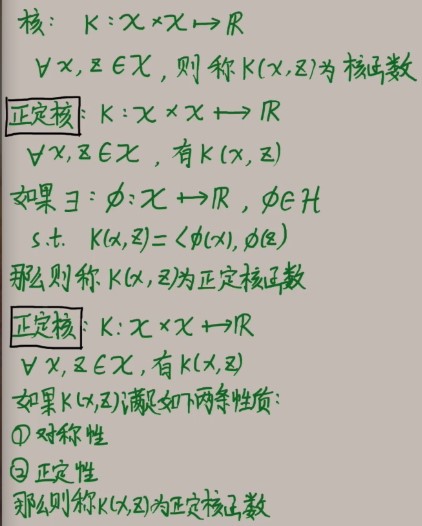 核： K : X × X ↦ ℝ
∀ x, z ∈ X , 则称 K(x, z) 为 核函数
正定核 : K : X × X ↦ ℝ
∀ x, z ∈ X , 有 K(x, z)
如果 ∃ : ϕ : X ↦ ℝ , ϕ ∈ H
s.t. K(x, z) = ⟨ϕ(x), ϕ(z)⟩
那么则称 K(x, z) 为正定核函数
正定核 : K : X × X ↦ ℝ
∀ x, z ∈ X , 有 K(x, z)
如果 K(x, z) 满足如下两条性质：
① 对称性
② 正定性
那么则称 K(x, z) 为正定核函数